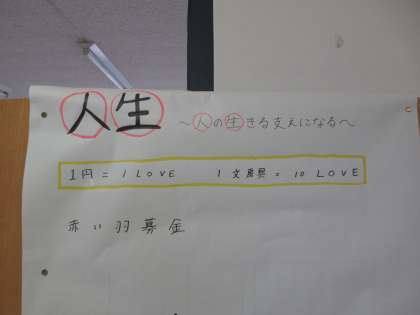 人生 ～人の生きる支えになる～
1円 = 1 LOVE 1 文房具 = 10 LOVE
赤い羽募金